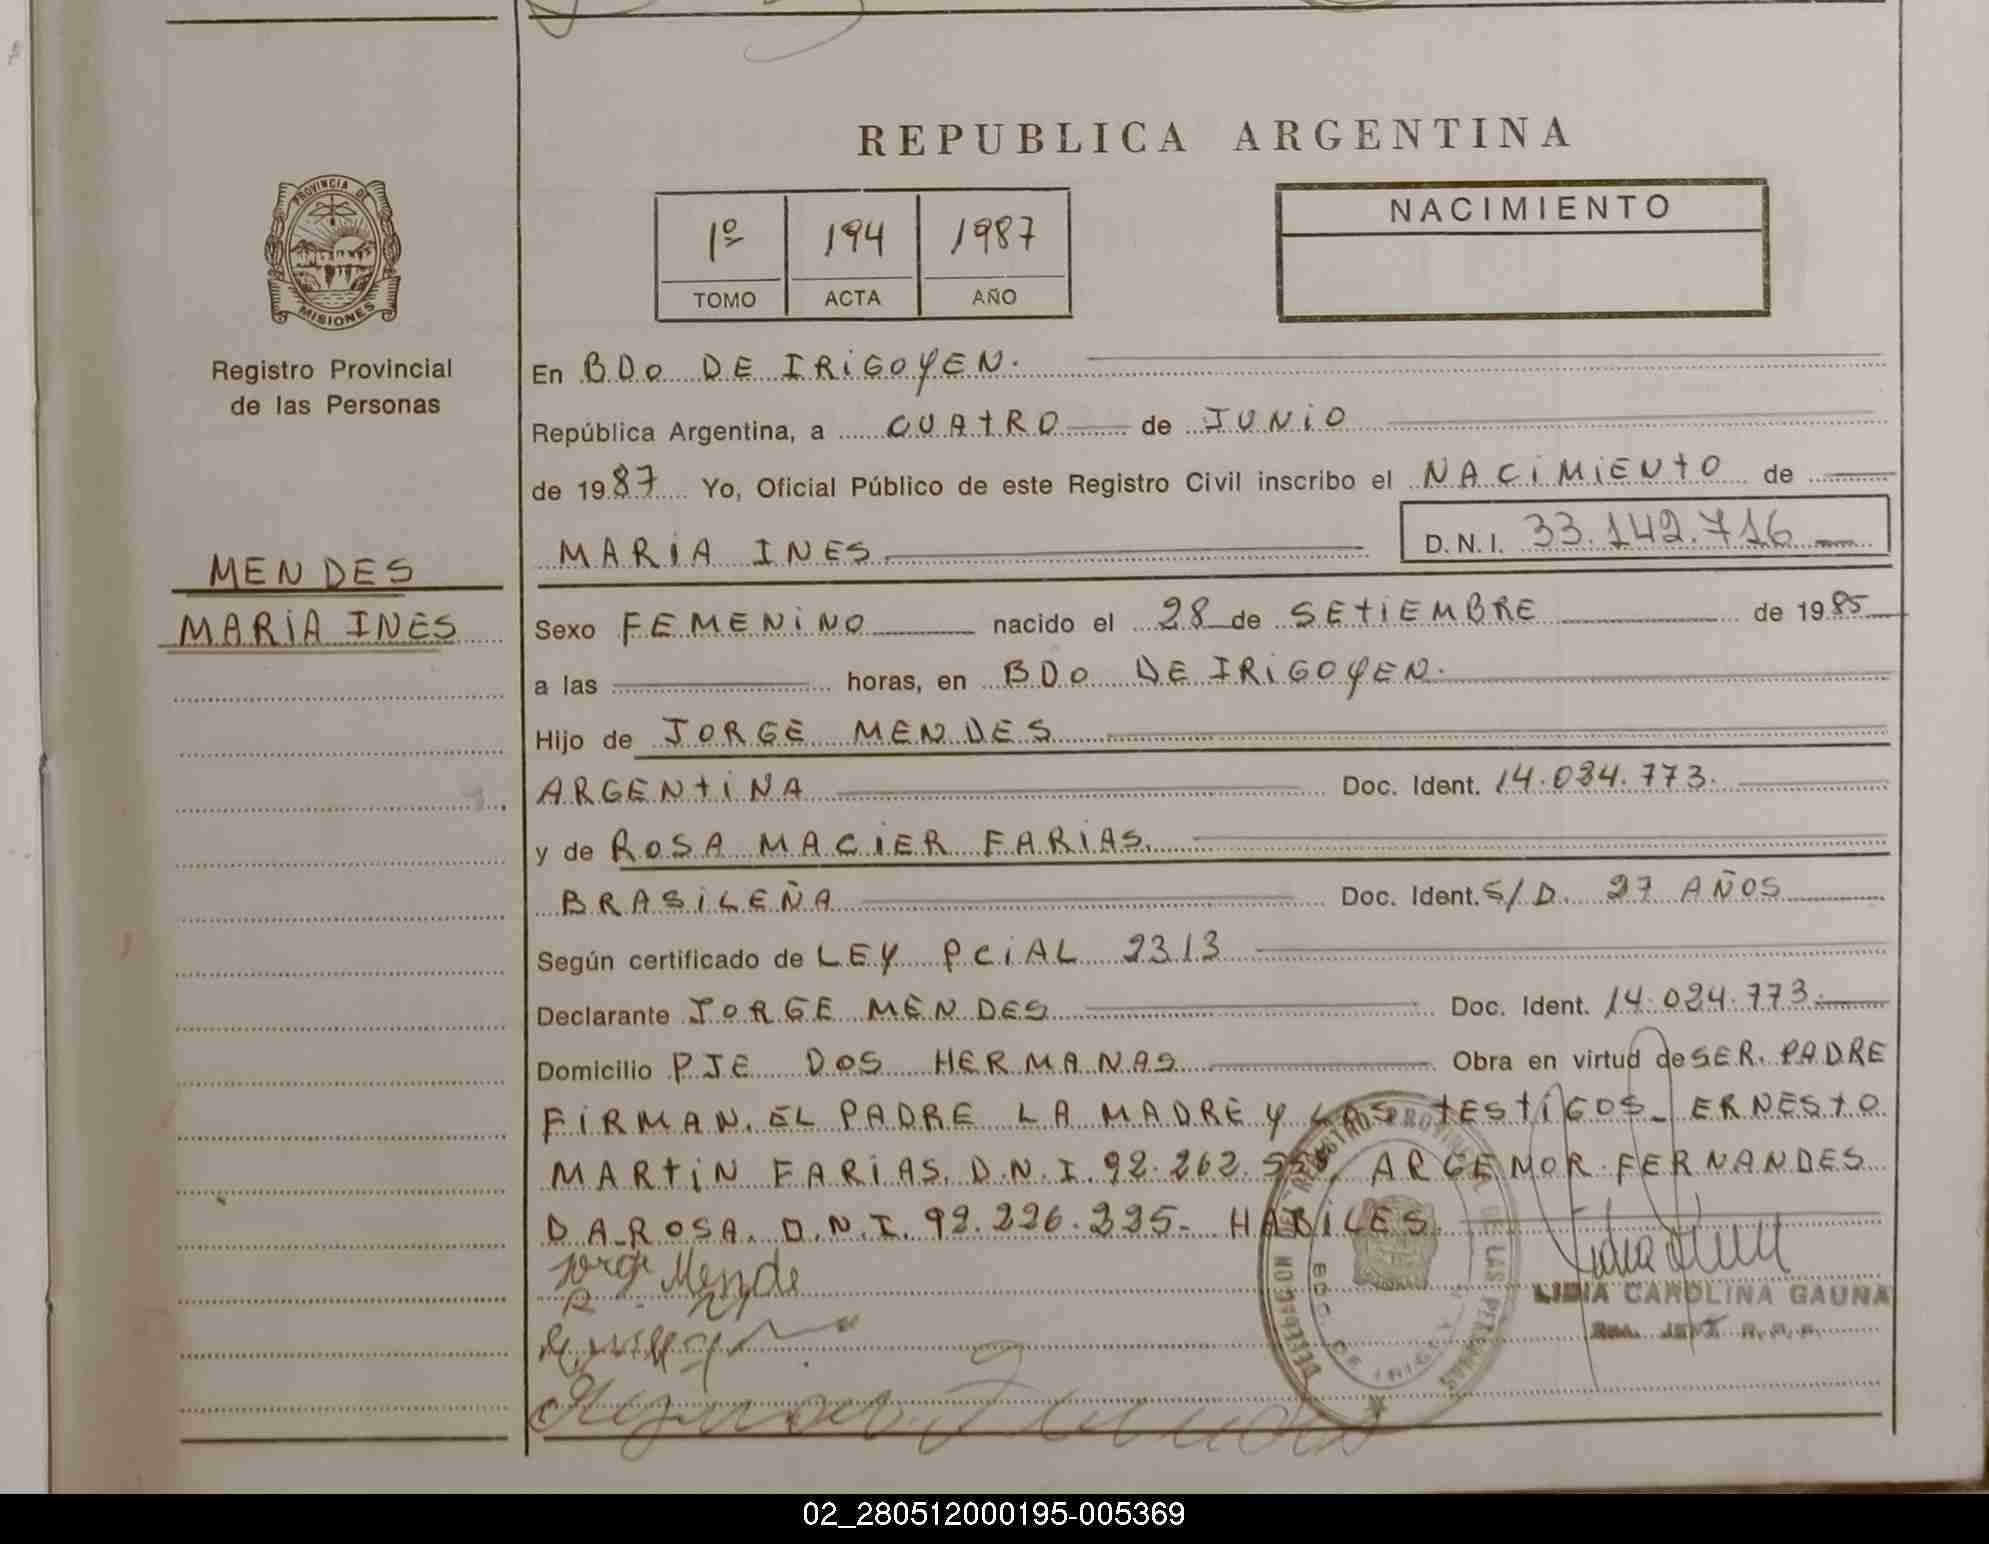 REPUBLICA ARGENTINA
PROVINCIA DE MISIONES
1º 194 1987
TOMO ACTA AÑO
NACIMIENTO
Registro Provincial
de las Personas
MENDES
MARIA INES
En BDo DE IRIGOYEN.
República Argentina, a CUATRO de JUNIO
de 1987 Yo, Oficial Público de este Registro Civil inscribo el NACIMIENTO de
MARIA INES D.N.I. 33.142.716
Sexo FEMENINO nacido el 28 de SETIEMBRE de 1985
a las horas, en BDo DE IRIGOYEN.
Hijo de JORGE MENDES
ARGENTINA Doc. Ident. 14.034.773.
y de ROSA MACIER FARIAS.
BRASILEÑA Doc. Ident. S/D. 27 AÑOS
Según certificado de LEY PCIAL 2313
Declarante JORGE MENDES Doc. Ident. 14.024.773.
Domicilio PJE DOS HERMANAS Obra en virtud de SER. PADRE
FIRMAN. EL PADRE LA MADRE Y LOS TESTIGOS_ ERNESTO
MARTIN FARIAS. D.N.I. 92.262. ARGEMOR FERNANDES
DA ROSA. D.N.I. 92.226.225- HABILES.
Jorge Mende
REGISTRO PROVINCIAL DE LAS PERSONAS
BDO. DE IRIGOYEN
LIDIA CAROLINA GAUNA
02_280512000195-005369